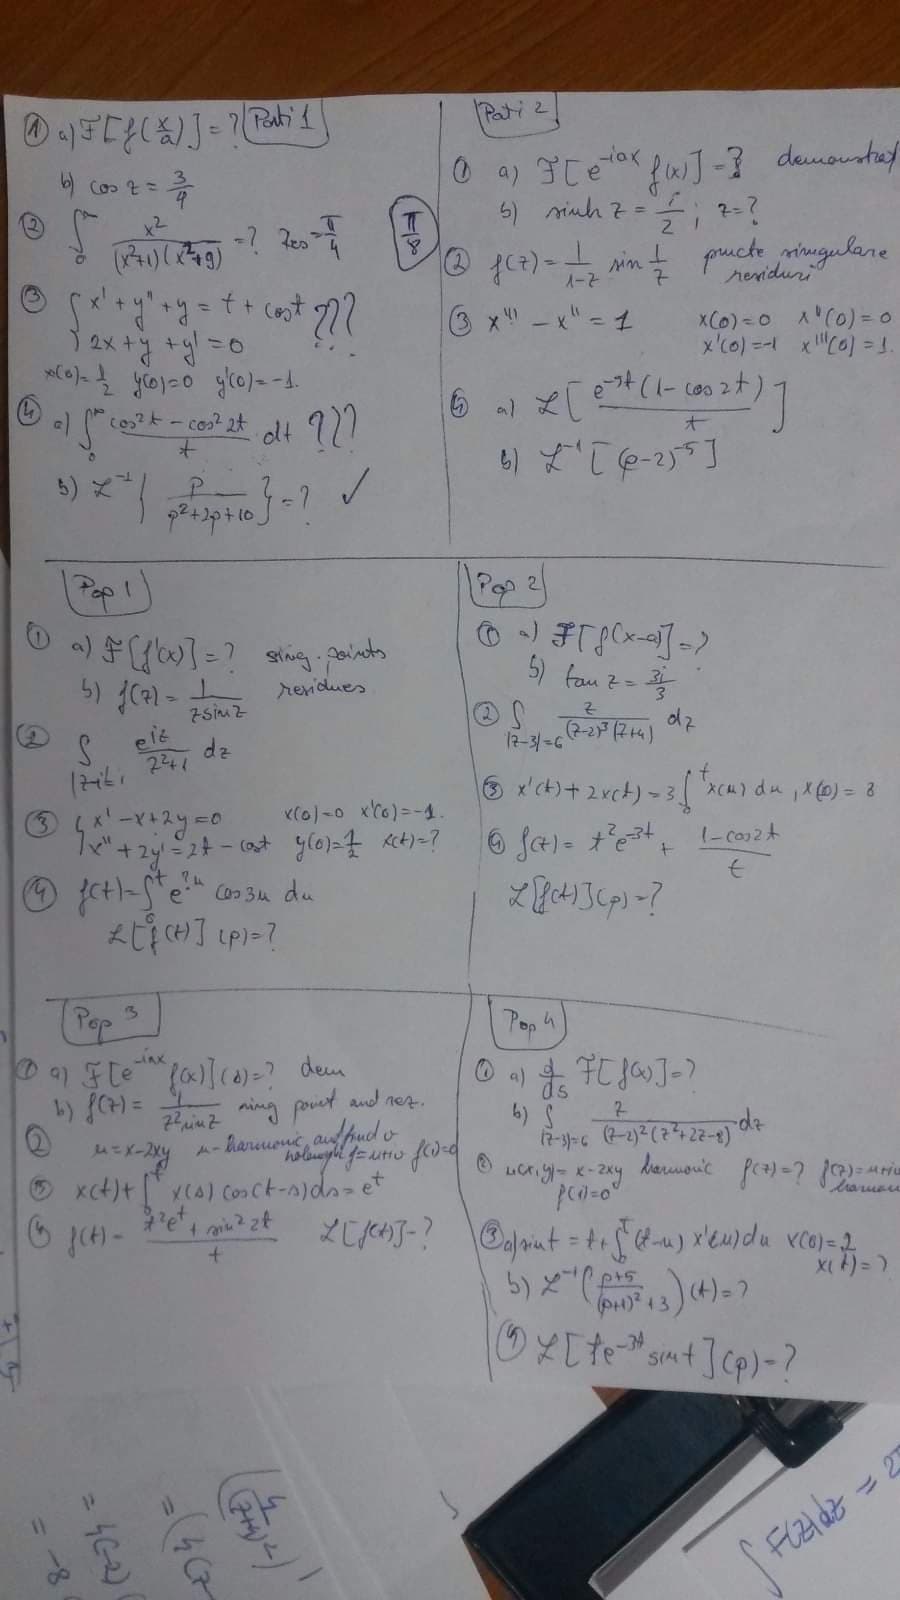 Parti 1
① a) F[f(x/a)] = ?
b) cos z = 3/4
② ∫₀^∞ x²/((x²+1)(x²+9)) = ? Res = π/4 π/8
③ { x' + y'' + y = t + cos t ???
2x + y + y' = 0
x(0) = 1/2 y(0) = 0 y'(0) = -1.
④ a) ∫₀^∞ (cos²t - cos²2t)/t dt ???
b) L⁻¹ { p/(p²+2p+10) } = ? ✓
Parti 2
① a) F[e^(-iax) f(x)] = ?
b) sinh z = i/2 ; z = ?
② f(z) = 1/(1-z) sin 1/z pucte singulare
residuri
③ x'''' - x'' = 1 x(0) = 0 x''(0) = 0
x'(0) = -1 x'''(0) = 1.
④ a) L[ e^(-5t)(1 - cos 2t)/t ]
b) L⁻¹[(p-2)⁻⁵]
Pop 1
① a) F[f'(x)] = ? sing. points
b) f(z) = 1/(z sin z) residues
② ∫ e^(iz)/(z²+1) dz
③ { x' - x + 2y = 0 x(0) = 0 x'(0) = -1.
x'' + 2y' = 2t - cos t y(0) = 1/2 x(t) = ?
④ f(t) = ∫₀^t cos 3u du
L[f(t)](p) = ?
Pop 2
① a) F[f(x-a)] = ?
b) tan z = 3i/3
② ∫_(|z-3|=6) z/((z-2)³(z+4)) dz
③ x'(t) + 2x(t) = 3∫₀^t x(u) du, x(0) = 3
④ f(t) = t² e^(-3t) + (1 - cos 2t)/t
L[f(t)](p) = ?
Pop 3
① a) F[e^(-iax) f(x)](s) = ? dem
b) f(z) = 1/(z² sin z) sing point and rez.
② u = x - 2xy u - harmonic, and find v
f = u + iv f(1) = 0
③ x(t) + ∫₀^t x(s) cos(t-s) ds = e^t
④ f(t) = (t² e^t + sin² 2t)/t L[f(t)] = ?
Pop 4
① a) d/ds F[f(x)] = ?
b) ∫_(|z-3|=6) z/((z-2)²(z²+2z-8)) dz
② u(x,y) = x - 2xy harmonic f(z) = ? f(z) = u + iv
f(1) = 0
③ a) sin t = t + ∫₀^t (t-u) x'(u) du x(0) = 2
x(t) = ?
b) L⁻¹( (p+5)/((p+1)²+3) )(t) = ?
④ L[t e^(-3t) sin t](p) = ?
∫ F(z)dz =